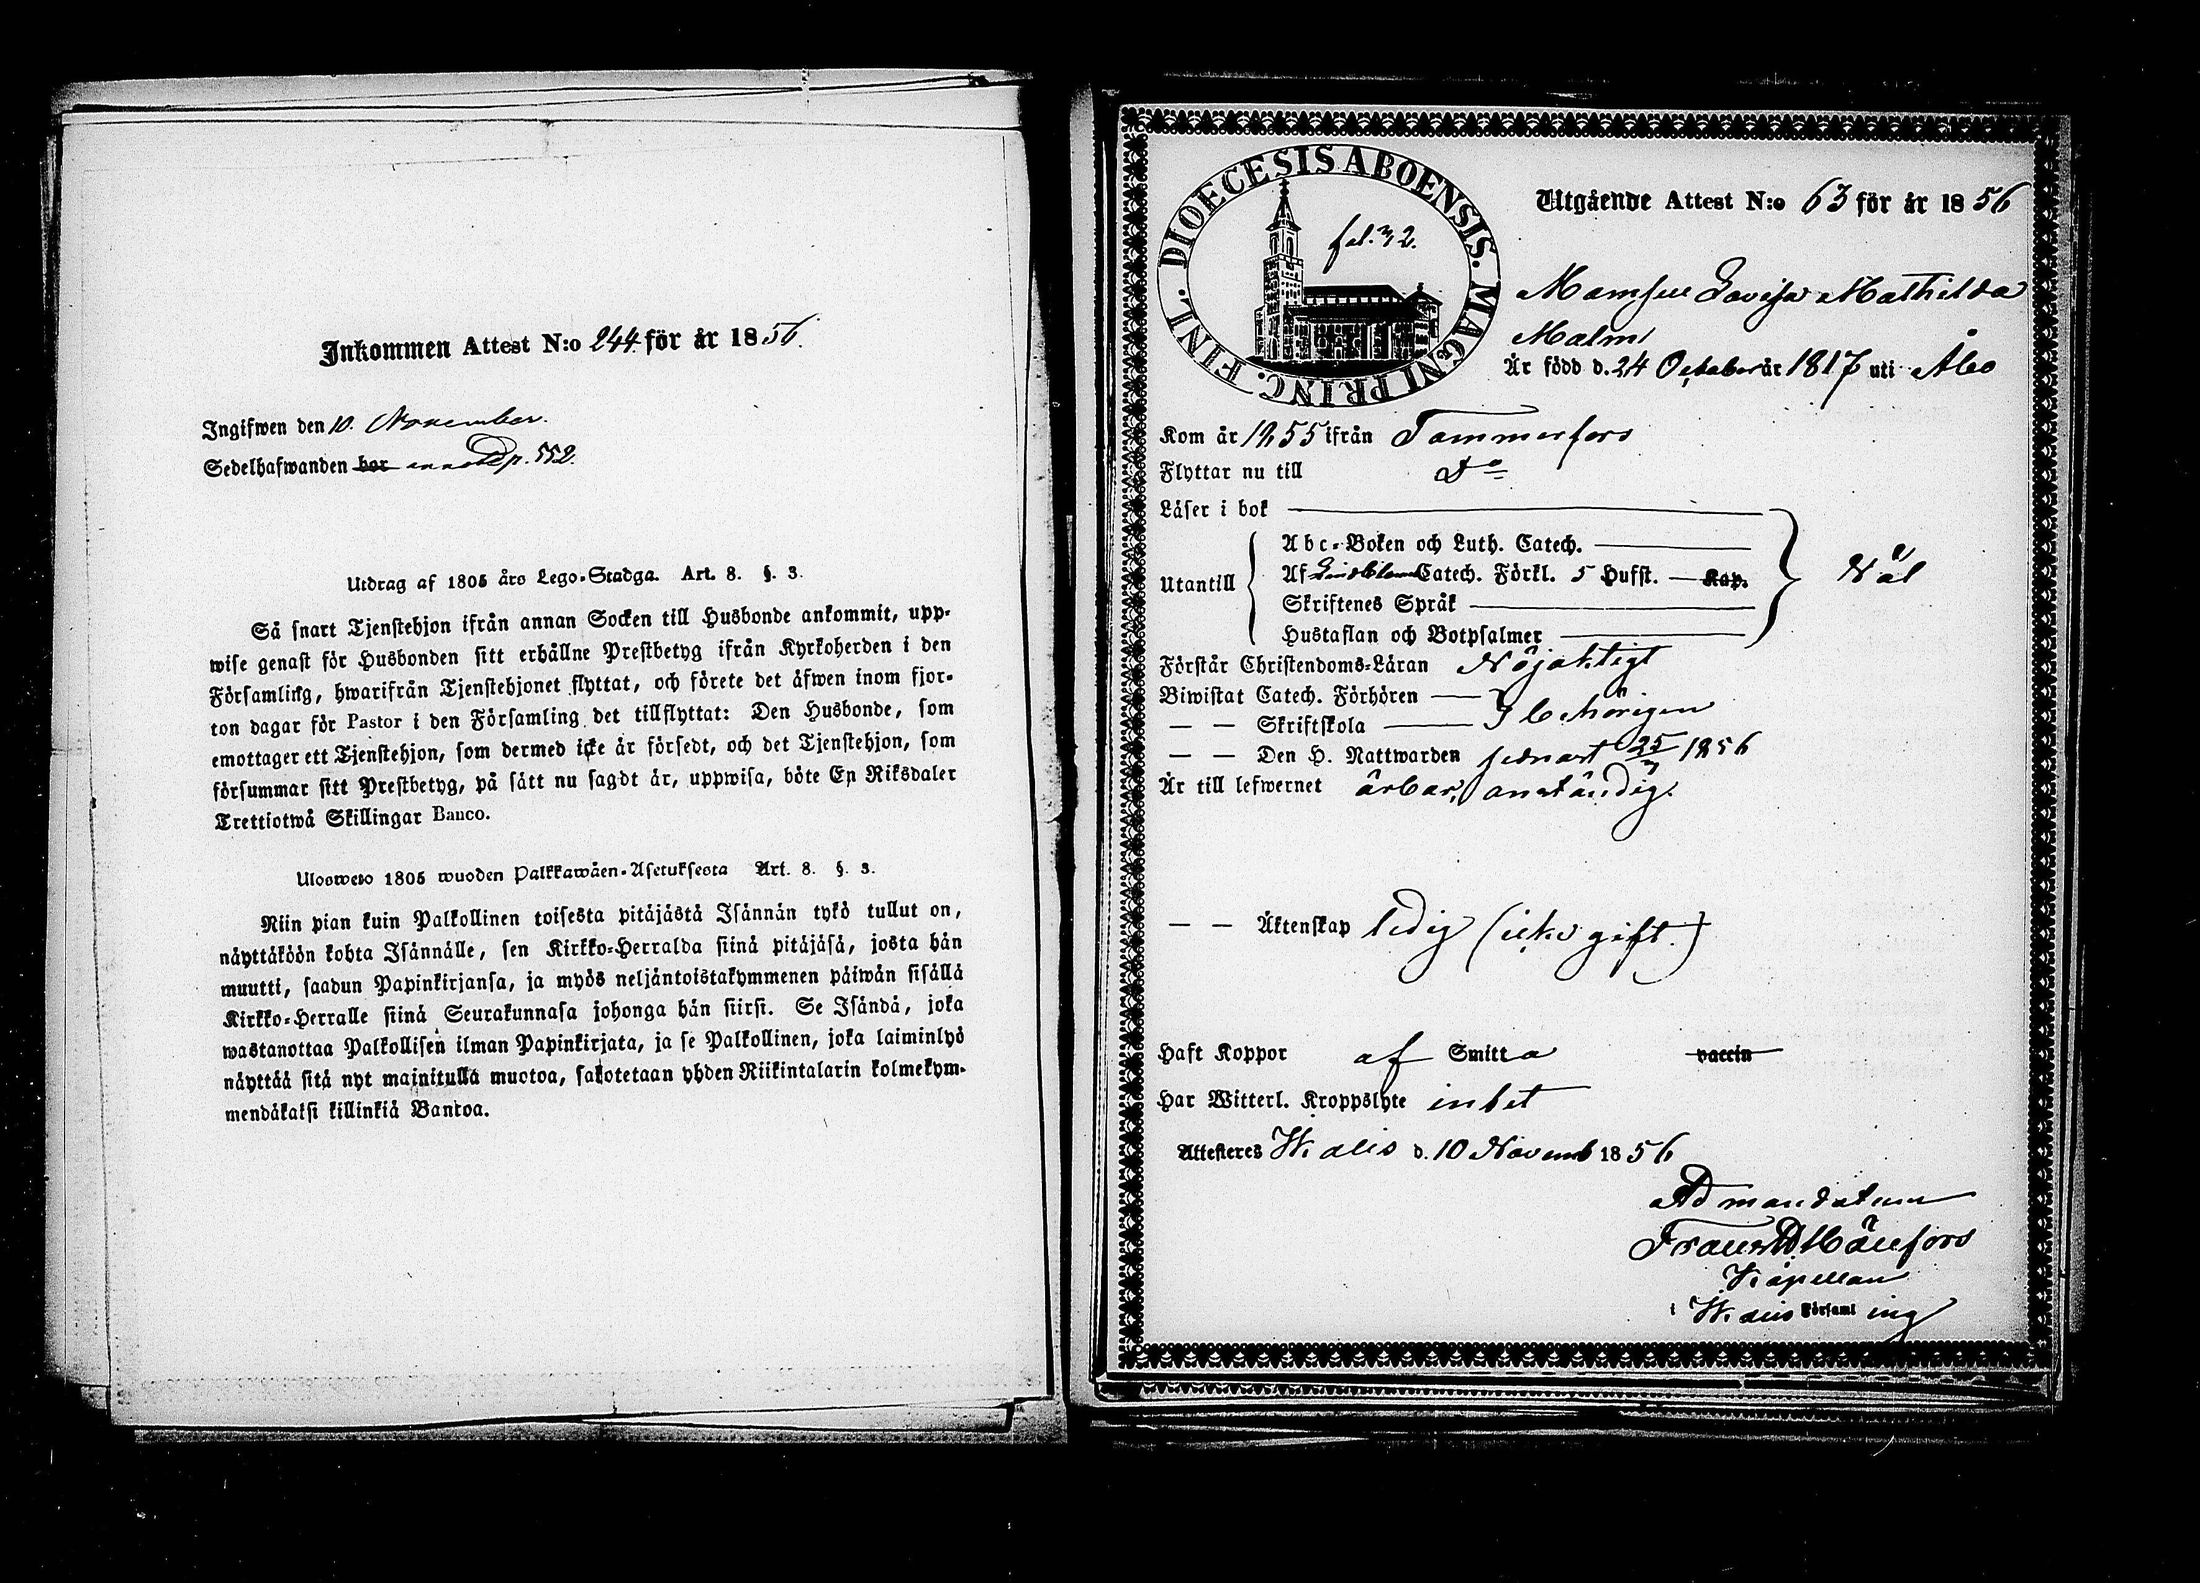 Inkommen Attest N:o 244 för år 1856.
Ingifwen den 10. November.
Sedelhafwanden bor p. 552.
Utdrag af 1805 års Lego-Stadga. Art. 8. §. 3.
Så snart Tjenstehjon ifrån annan Socken till Husbonde ankommit, upp-
wise genast för Husbonden sitt erhållne Prestbetyg ifrån Kyrkoherden i den
Församlickg, hwarifrån Tjenstehjonet flyttat, och förete det äfwen inom fjor-
ton dagar för Pastor i den Församling det tillflyttat: Den Husbonde, som
emottager ett Tjenstehjon, som dermed icke är försedt, och det Tjenstehjon, som
försummar sitt Prestbetyg, på sätt nu sagdt är, uppwisa, böte En Riksdaler
Trettiotwå Skillingar Banco.
Ulosweto 1805 wuoden Palkkawäen-Asetuksesta Art. 8. §. 3.
Niin pian kuin Palkollinen toisesta pitäjästä Isännän tykö tullut on,
näyttäköön kohta Isännälle, sen Kirkko-Herralda siinä pitäjäsä, josta hän
muutti, saadun Papinkirjansa, ja myös neljäntoistakymmenen päiwän sisällä
Kirkko-Herralle siinä Seurakunnasa johonga hän siirsi. Se Isändä, joka
wastanottaa Palkollisen ilman Papinkirjata, ja se Palkollinen, joka laiminlyö
näyttää sitä nyt mainitulla muotoa, sakotetaan yhden Riikintalarin kolmekym-
mendäkaksi killinkiä Bankoa.
DIOECESIS ABOENSIS. MAGNI PRINC. FINL.
fol. 32.
Utgående Attest N:o 63 för år 1856
Mamsell Lovisa Mathilda
Malm
Är född d. 24 October år 1817 uti Åbo
Kom år 1855 ifrån Tammerfors
Flyttar nu till Do
Läser i bok
Abc-Boken och Luth. Catech.
Utantill Af Lindbloms Catech. Förkl. 5 Hufst. — Kap. Nöl
Skriftenes Språk
Hustaflan och Botpsalmer
Förstår Christendoms-Läran Nöjaktigt
Biwistat Catech. Förhören
— — Skriftskola Behörigen
— — Den H. Nattwarden senast 25/ 1856
Är till lefwernet ärbar, anständig.
— — Äktenskap ledig (icke gift.)
Haft Koppor af Smitta vaccin
Har Witterl. Kroppslyte intet
Attesteres Wials d. 10 Novemb 1856
Ad mandatum
Frans Hällfors
Kapellan
i Wials Församling